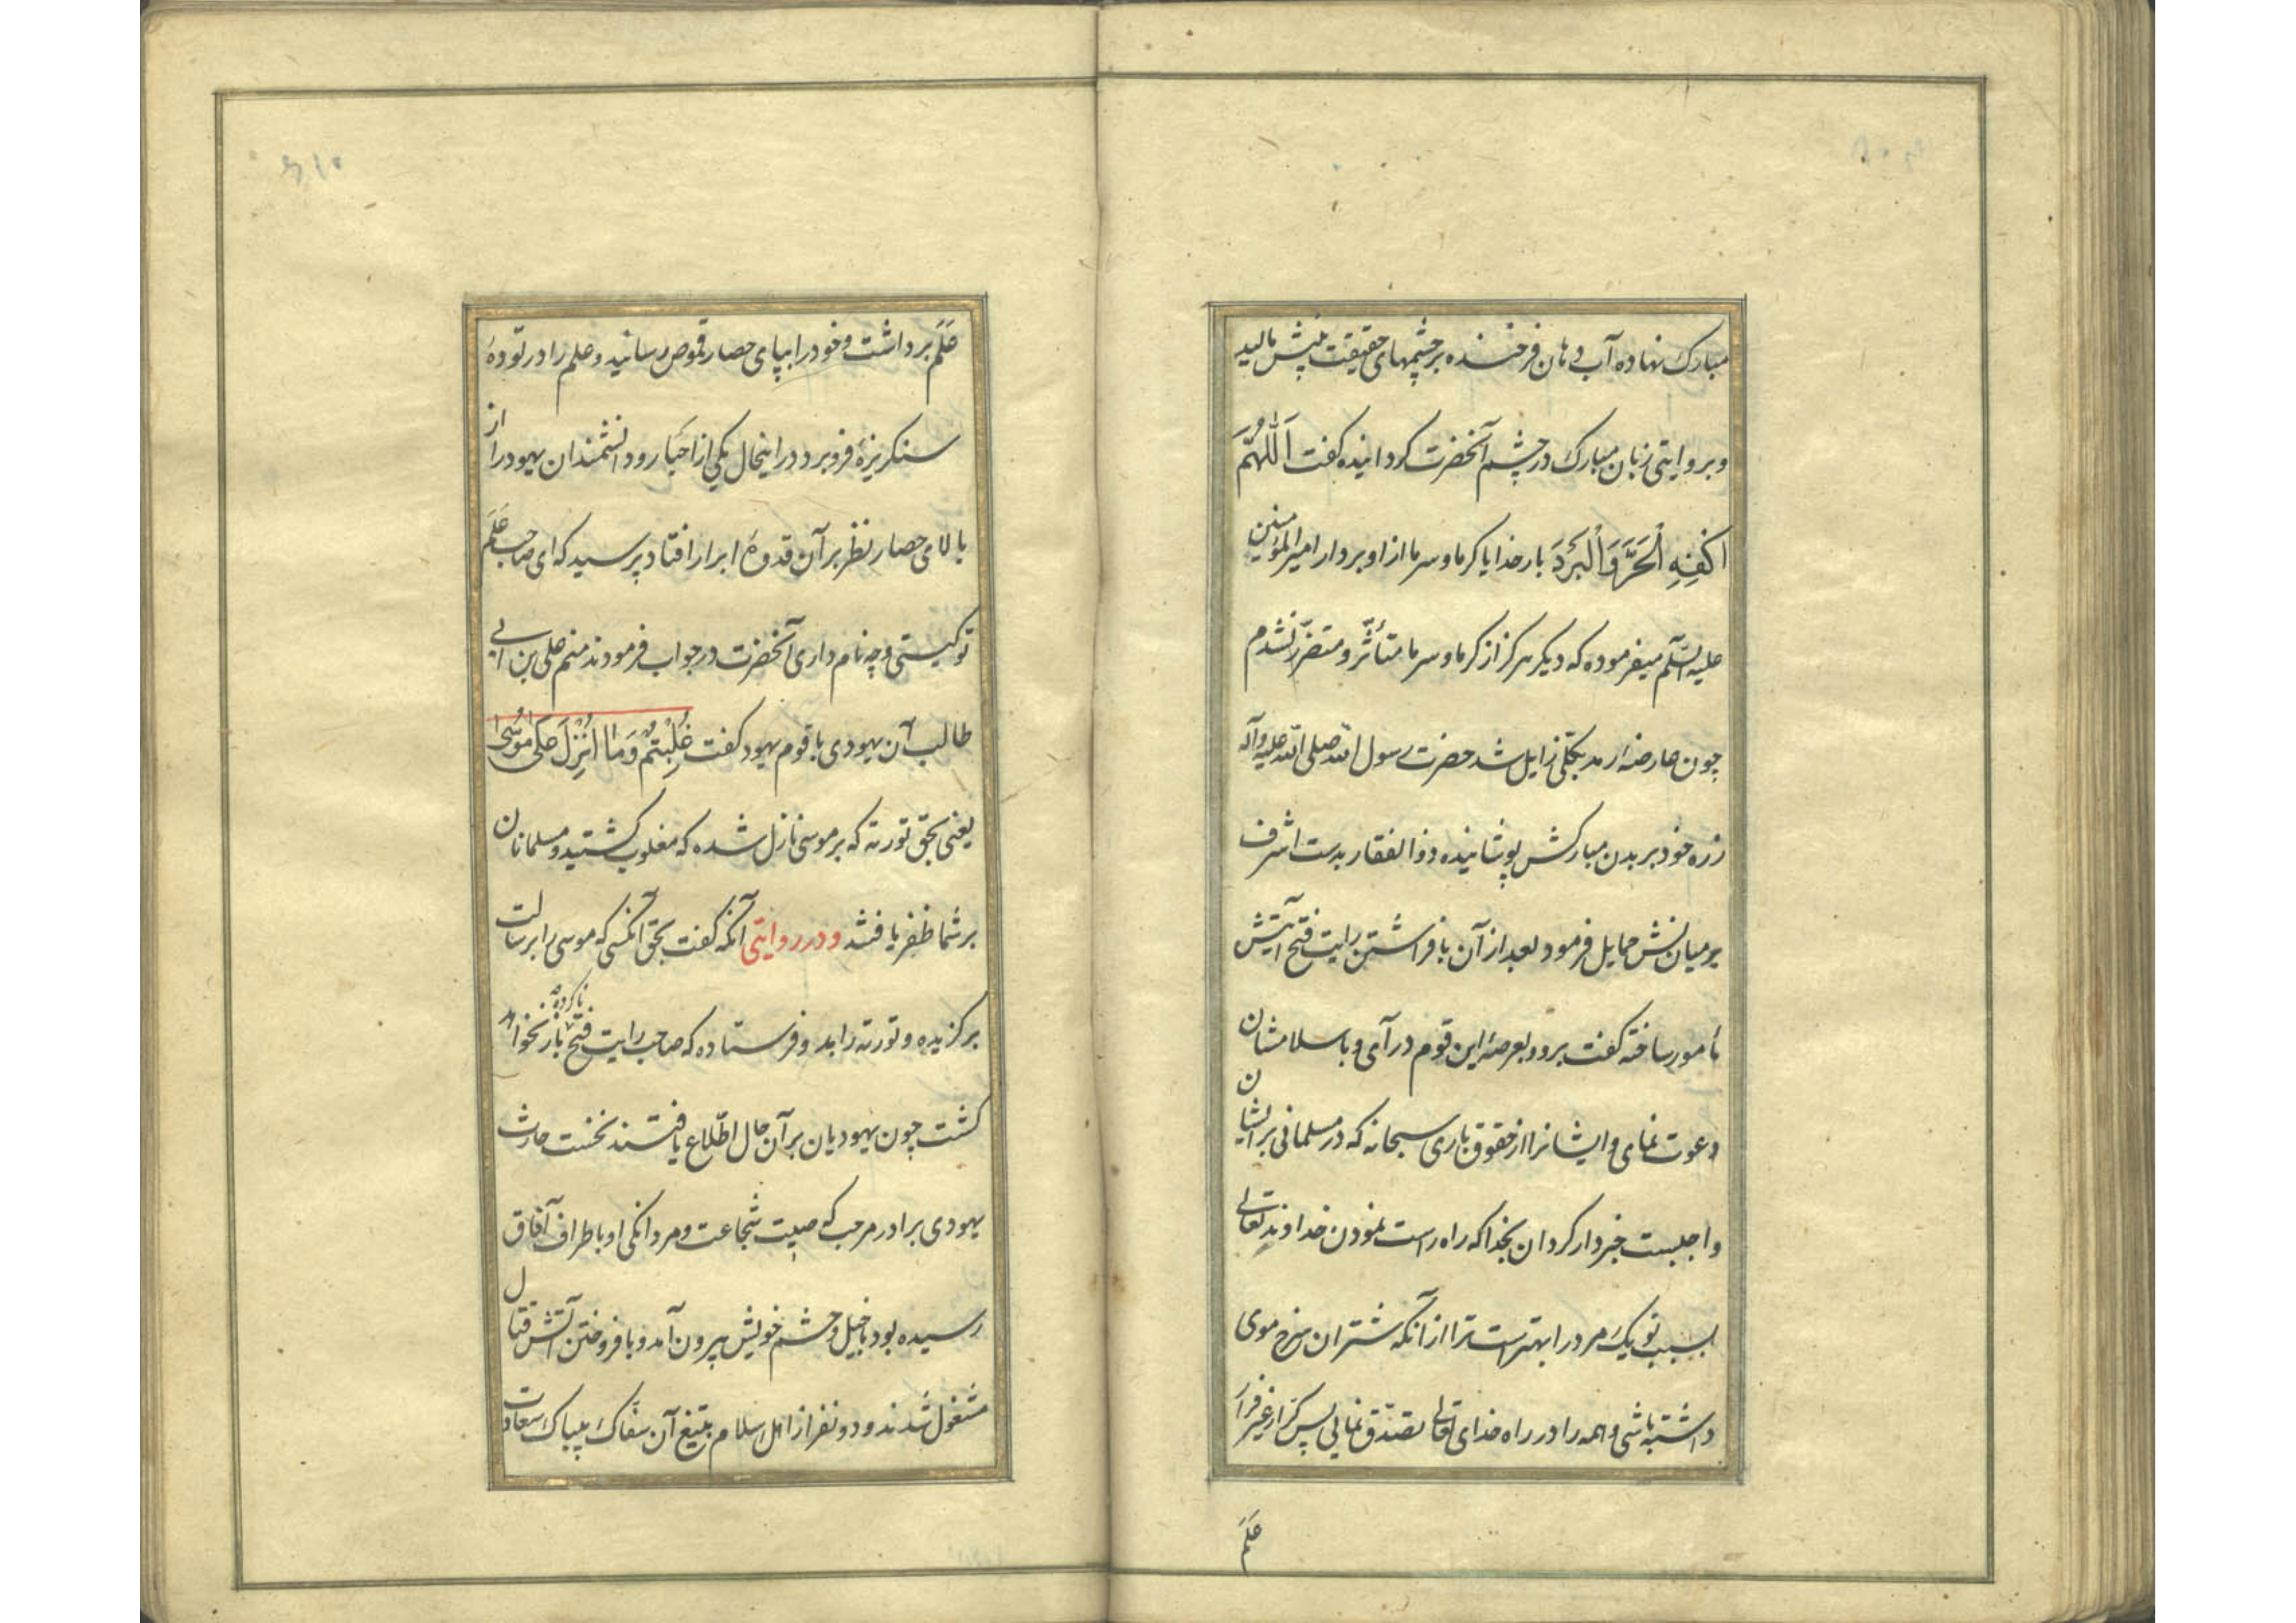 مبارک نهاده آب دهان فرخنده بر چشمهای حقیقت بینش مالید
و بروایتی زبان مبارک در چشم آنحضرت کردانیده کفت اَللّٰهُمَّ
اکْفِهِ الْحَرَّ وَالْبَرْدَ بار خدایا کرما و سرما از او بردار امیرالمؤمنین
علیه السّلم میفرموده که دیکر هرکز از کرما و سرما متأثّر و متضرّر نشدم
چون عارضهٔ رمد بکلّی زایل شد حضرت رسول اللّه صلی اللّه علیه وآله
زره خود بر بدن مبارکش پوشانیده ذوالفقار بدست اشرف
بر میانش حمایل فرمود بعد از آن بافراشتن رایت فتح آیتش
مأمور ساخته کفت برو و بعرصهٔ این قوم در آی و باسلامشان
دعوت نمای و ایشانرا از حقوق باری سبحانه که در مسلمانی بر ایشان
واجبست خبردار کردان بخدا که راه راست نمودن خداوند تعالی
بسبب تو یک مرد را بهتر است ترا از آنکه شتران سرخ موی
داشته باشی و همه را در راه خدای تعالی تصدّق نمایی پس کرّار غیر فرّار
عَلَم
عَلَم برداشت و خود را بپای حصار قموص رسانید و علم را در تودهٔ
سنکریزهٔ فرو برد در اینحال یکی از احبار و دانشمندان یهود را از
بالای حصار نظر بر آن قدوهٔ ابرار افتاد پرسید که ای صاحب عَلَم
تو کیستی و چه نام داری آنحضرت در جواب فرمودند منم علی بن ابی
طالب آن یهودی با قوم یهود کفت غُلِبْتُمْ وَمَا اُنْزِلَ عَلٰی مُوسٰی
یعنی بحق تورته که بر موسی نازل شده که مغلوب کشتید و مسلمانان
بر شما ظفر یافتند و در روایتی آنکه کفت بحق آنکسی که موسی را برسالت
برکزیده و تورته را بدو فرستاده که صاحب رایت فتح ناکرده باز نخواهد
کشت چون یهودیان بر آن حال اطّلاع یافتند نخست حارث
یهودی برادر مرحب که صیت شجاعت و مردانکی او باطراف آفاق
رسیده بود با خیل و حشم خویش بیرون آمد و بافروختن آتش قتال
مشغول شدند و دو نفر از اهل اسلام بتیغ آن سفّاک بیباک سعادت